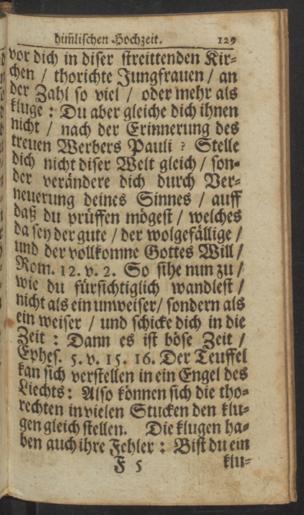 himlischen Hochzeit. 129
vor dich in diser streittenden Kir-
chen / thorichte Jungfrauen / an
der Zahl so viel / oder mehr als
kluge : Du aber gleiche dich ihnen
nicht / nach der Erinnerung des
treuen Werbers Pauli ? Stelle
dich nicht diser Welt gleich / son-
der verändere dich durch Ver-
neuerung deines Sinnes / auff
daß du prüffen mögest / welches
da sey der gute / der wolgefällige /
und der vollkomne Gottes Will /
Rom. 12. v. 2. So sihe nun zu /
wie du fürsichtiglich wandlest /
nicht als ein unweiser / sondern als
ein weiser / und schicke dich in die
Zeit : Dann es ist böse Zeit /
Ephes. 5. v. 15. 16. Der Teuffel
kan sich verstellen in ein Engel des
Liechts : Also können sich die tho-
rechten in vielen Stucken den klu-
gen gleich stellen. Die klugen ha-
ben auch ihre Fehler : Bist du ein
F 5 klu-